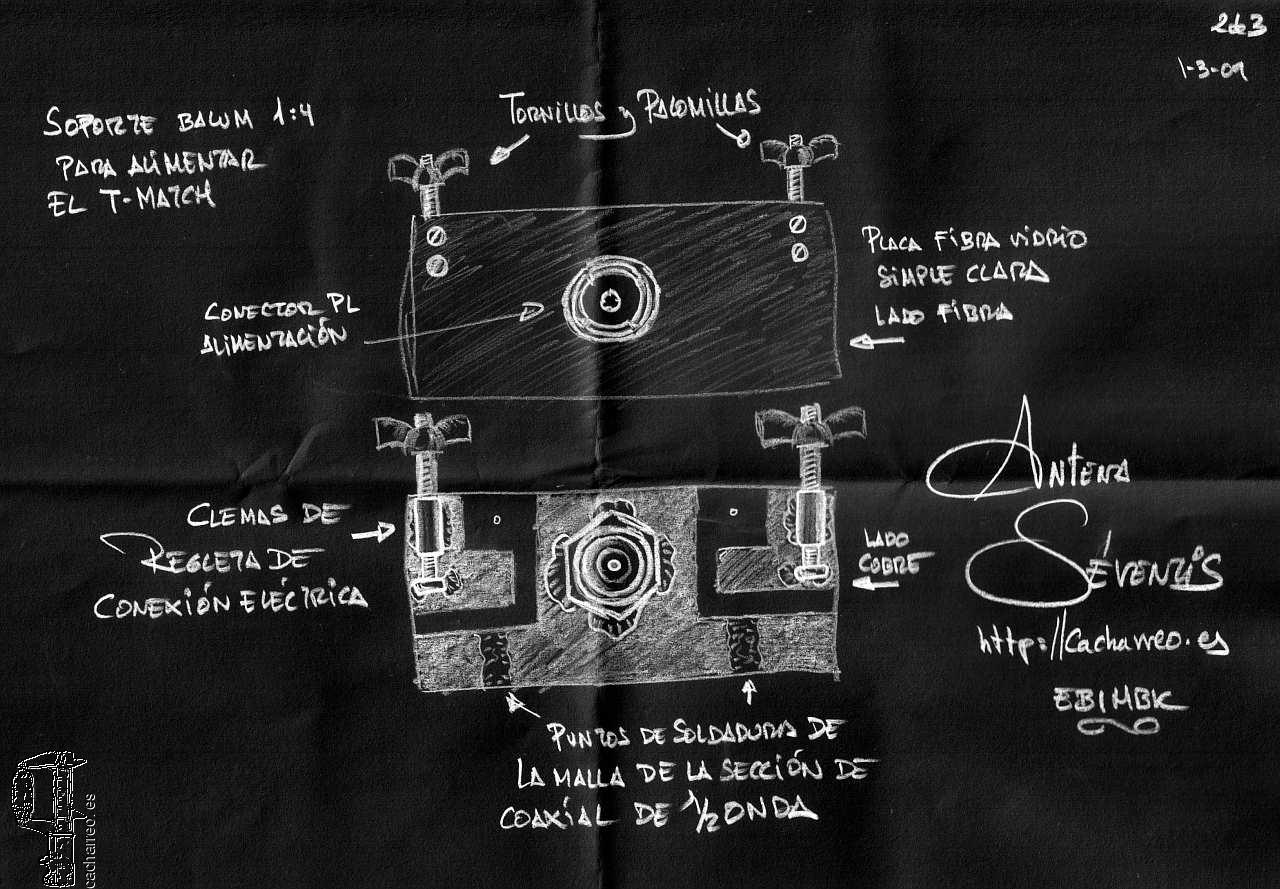 2de3
1-3-09
SOPORTE BALUM 1:4
PARA ALIMENTAR
EL T-MATCH
TORNILLOS y PALOMILLAS
PLACA FIBRA VIDRIO
SIMPLE CLARA
LADO FIBRA
CONECTOR PL
ALIMENTACIÓN
CLEMAS DE
REGLETA DE
CONEXIÓN ELÉCTRICA
LADO
COBRE
ANTENA
SÉVENTIS
http://cacharreo.es
EB1MBK
PUNTOS DE SOLDADURA DE
LA MALLA DE LA SECCIÓN DE
COAXIAL DE 1/2 ONDA
cacharreo.es